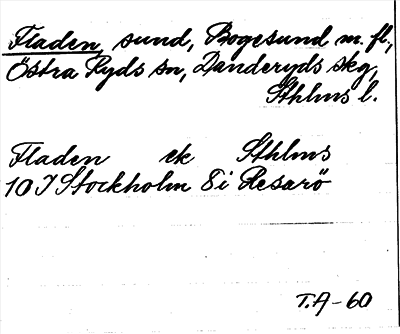 Fladen, sund, Bogesund m. fl.,
Östra Ryds sn, Danderyds skg,
Sthlms l.
Fladen ek Sthlms
10 I Stockholm 8i Resarö
T.A-60